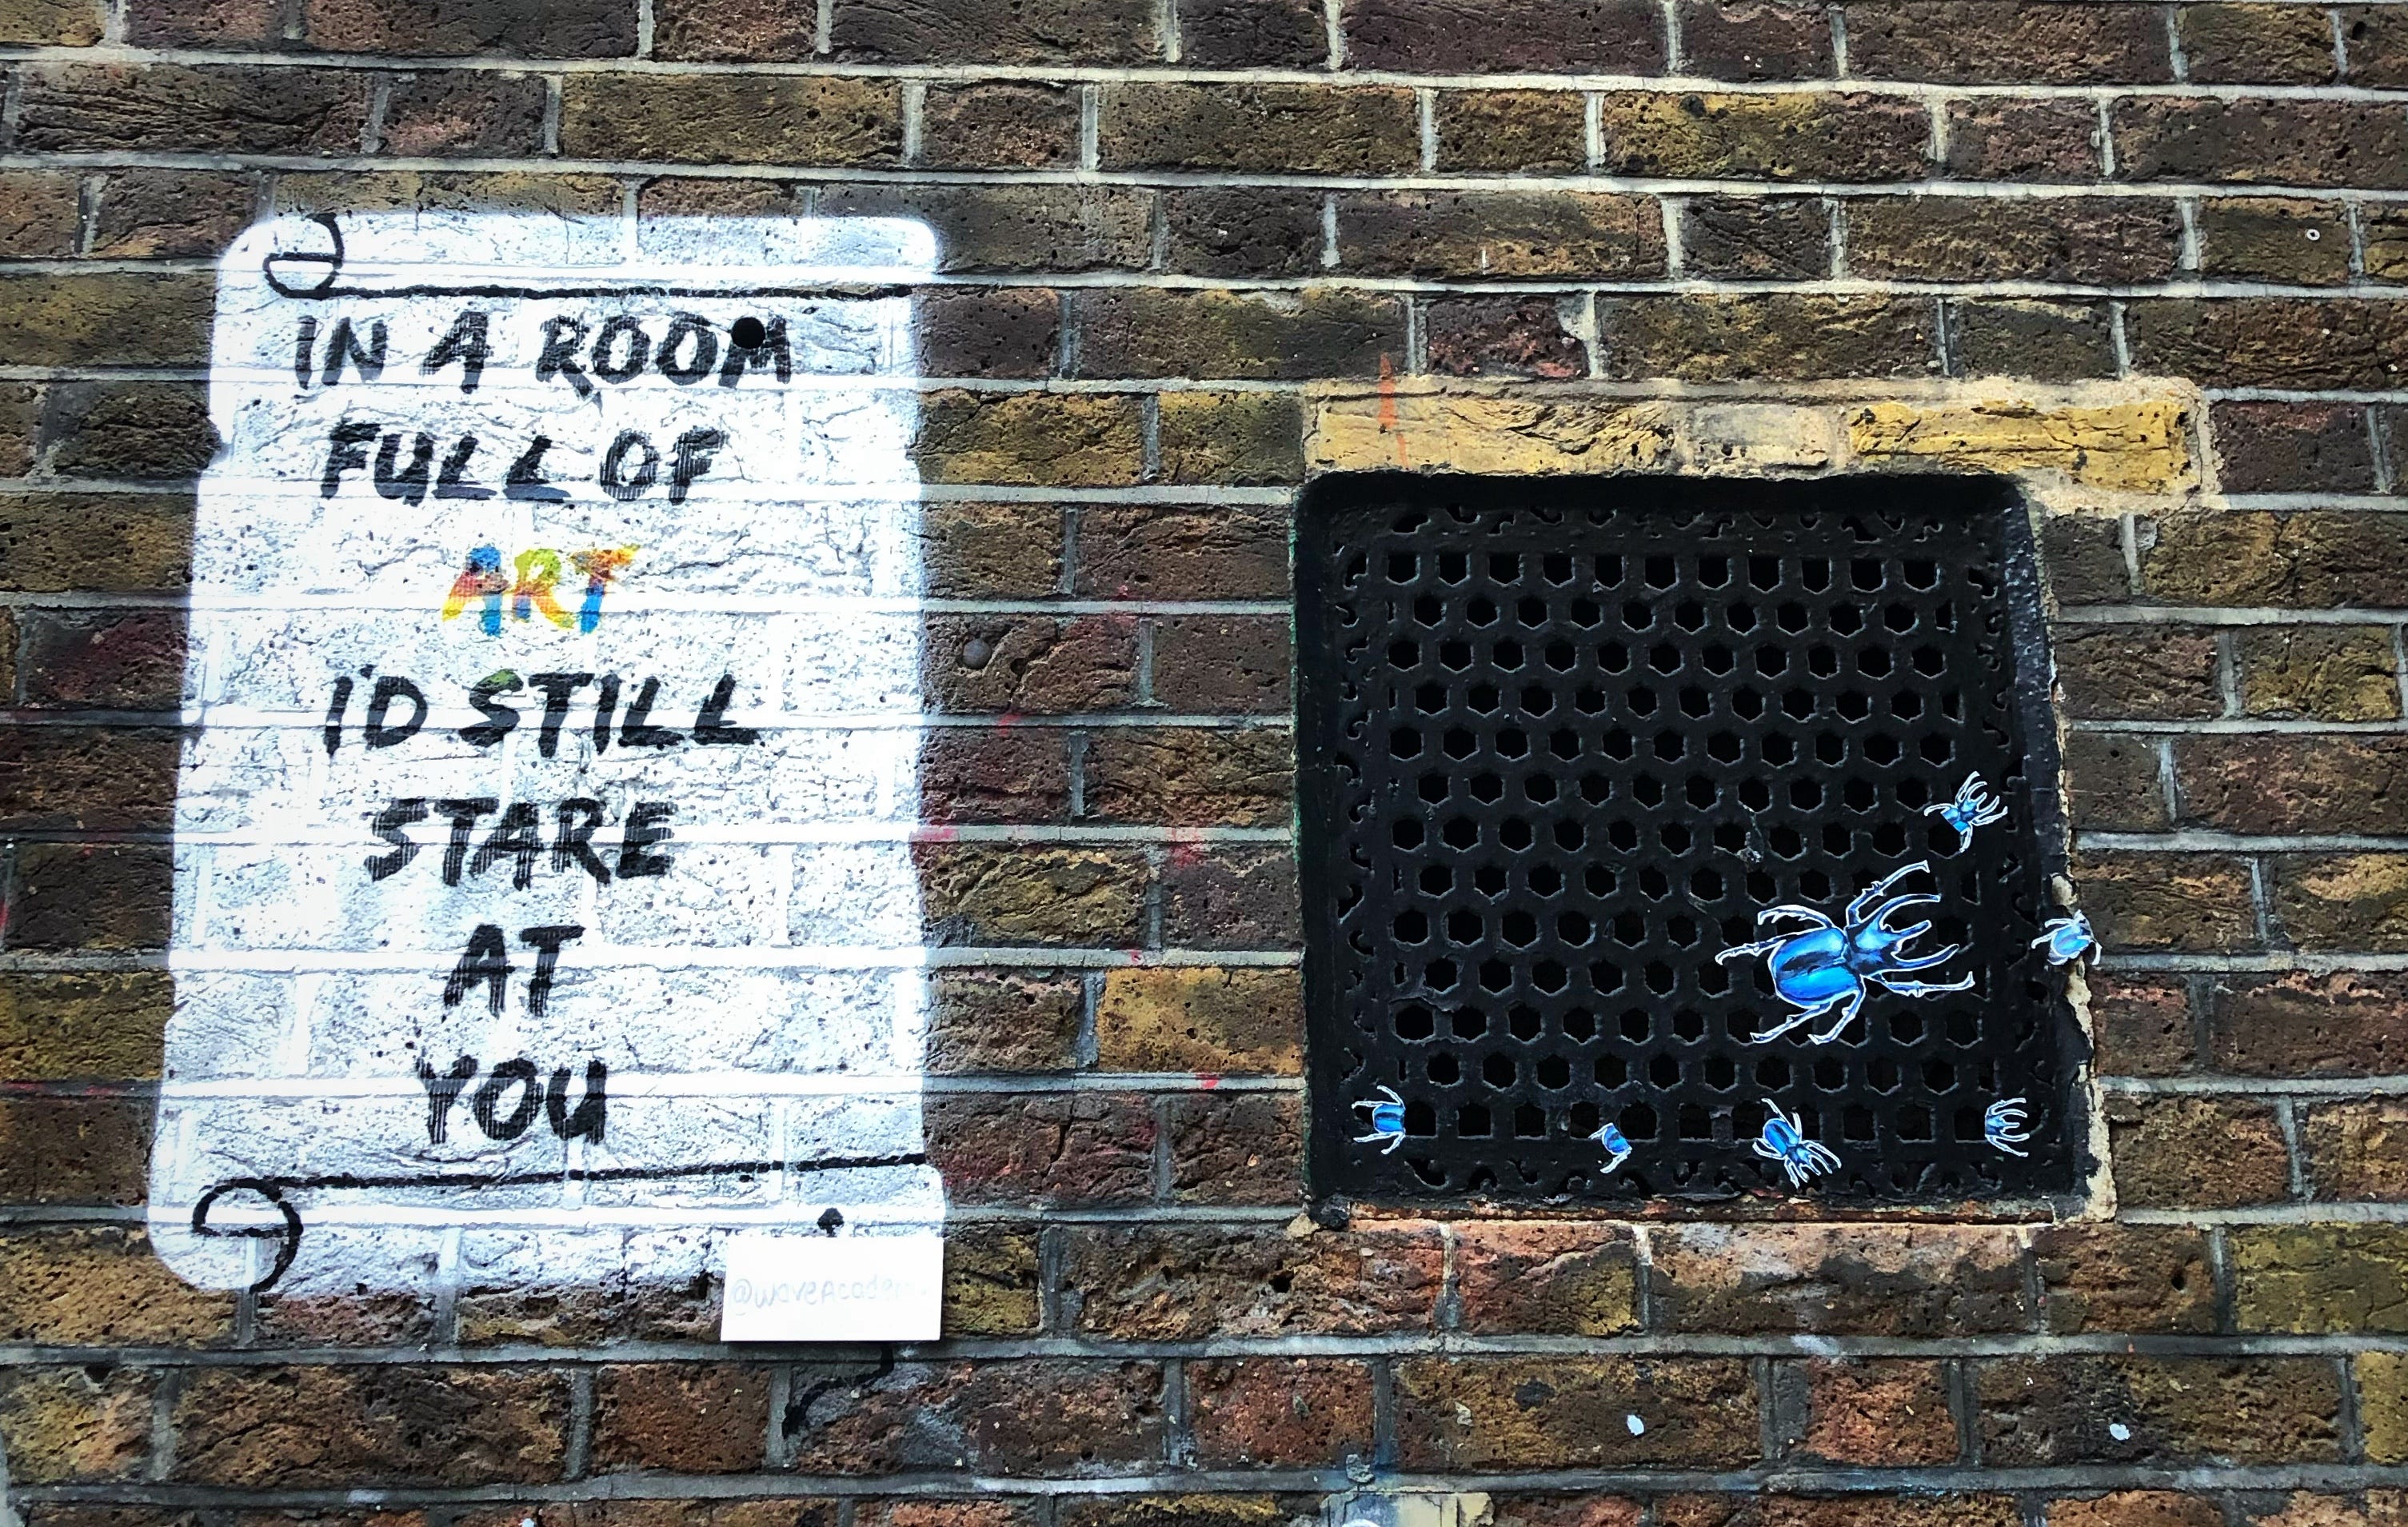 IN A ROOM
FULL OF
ART
I'D STILL
STARE
AT
YOU